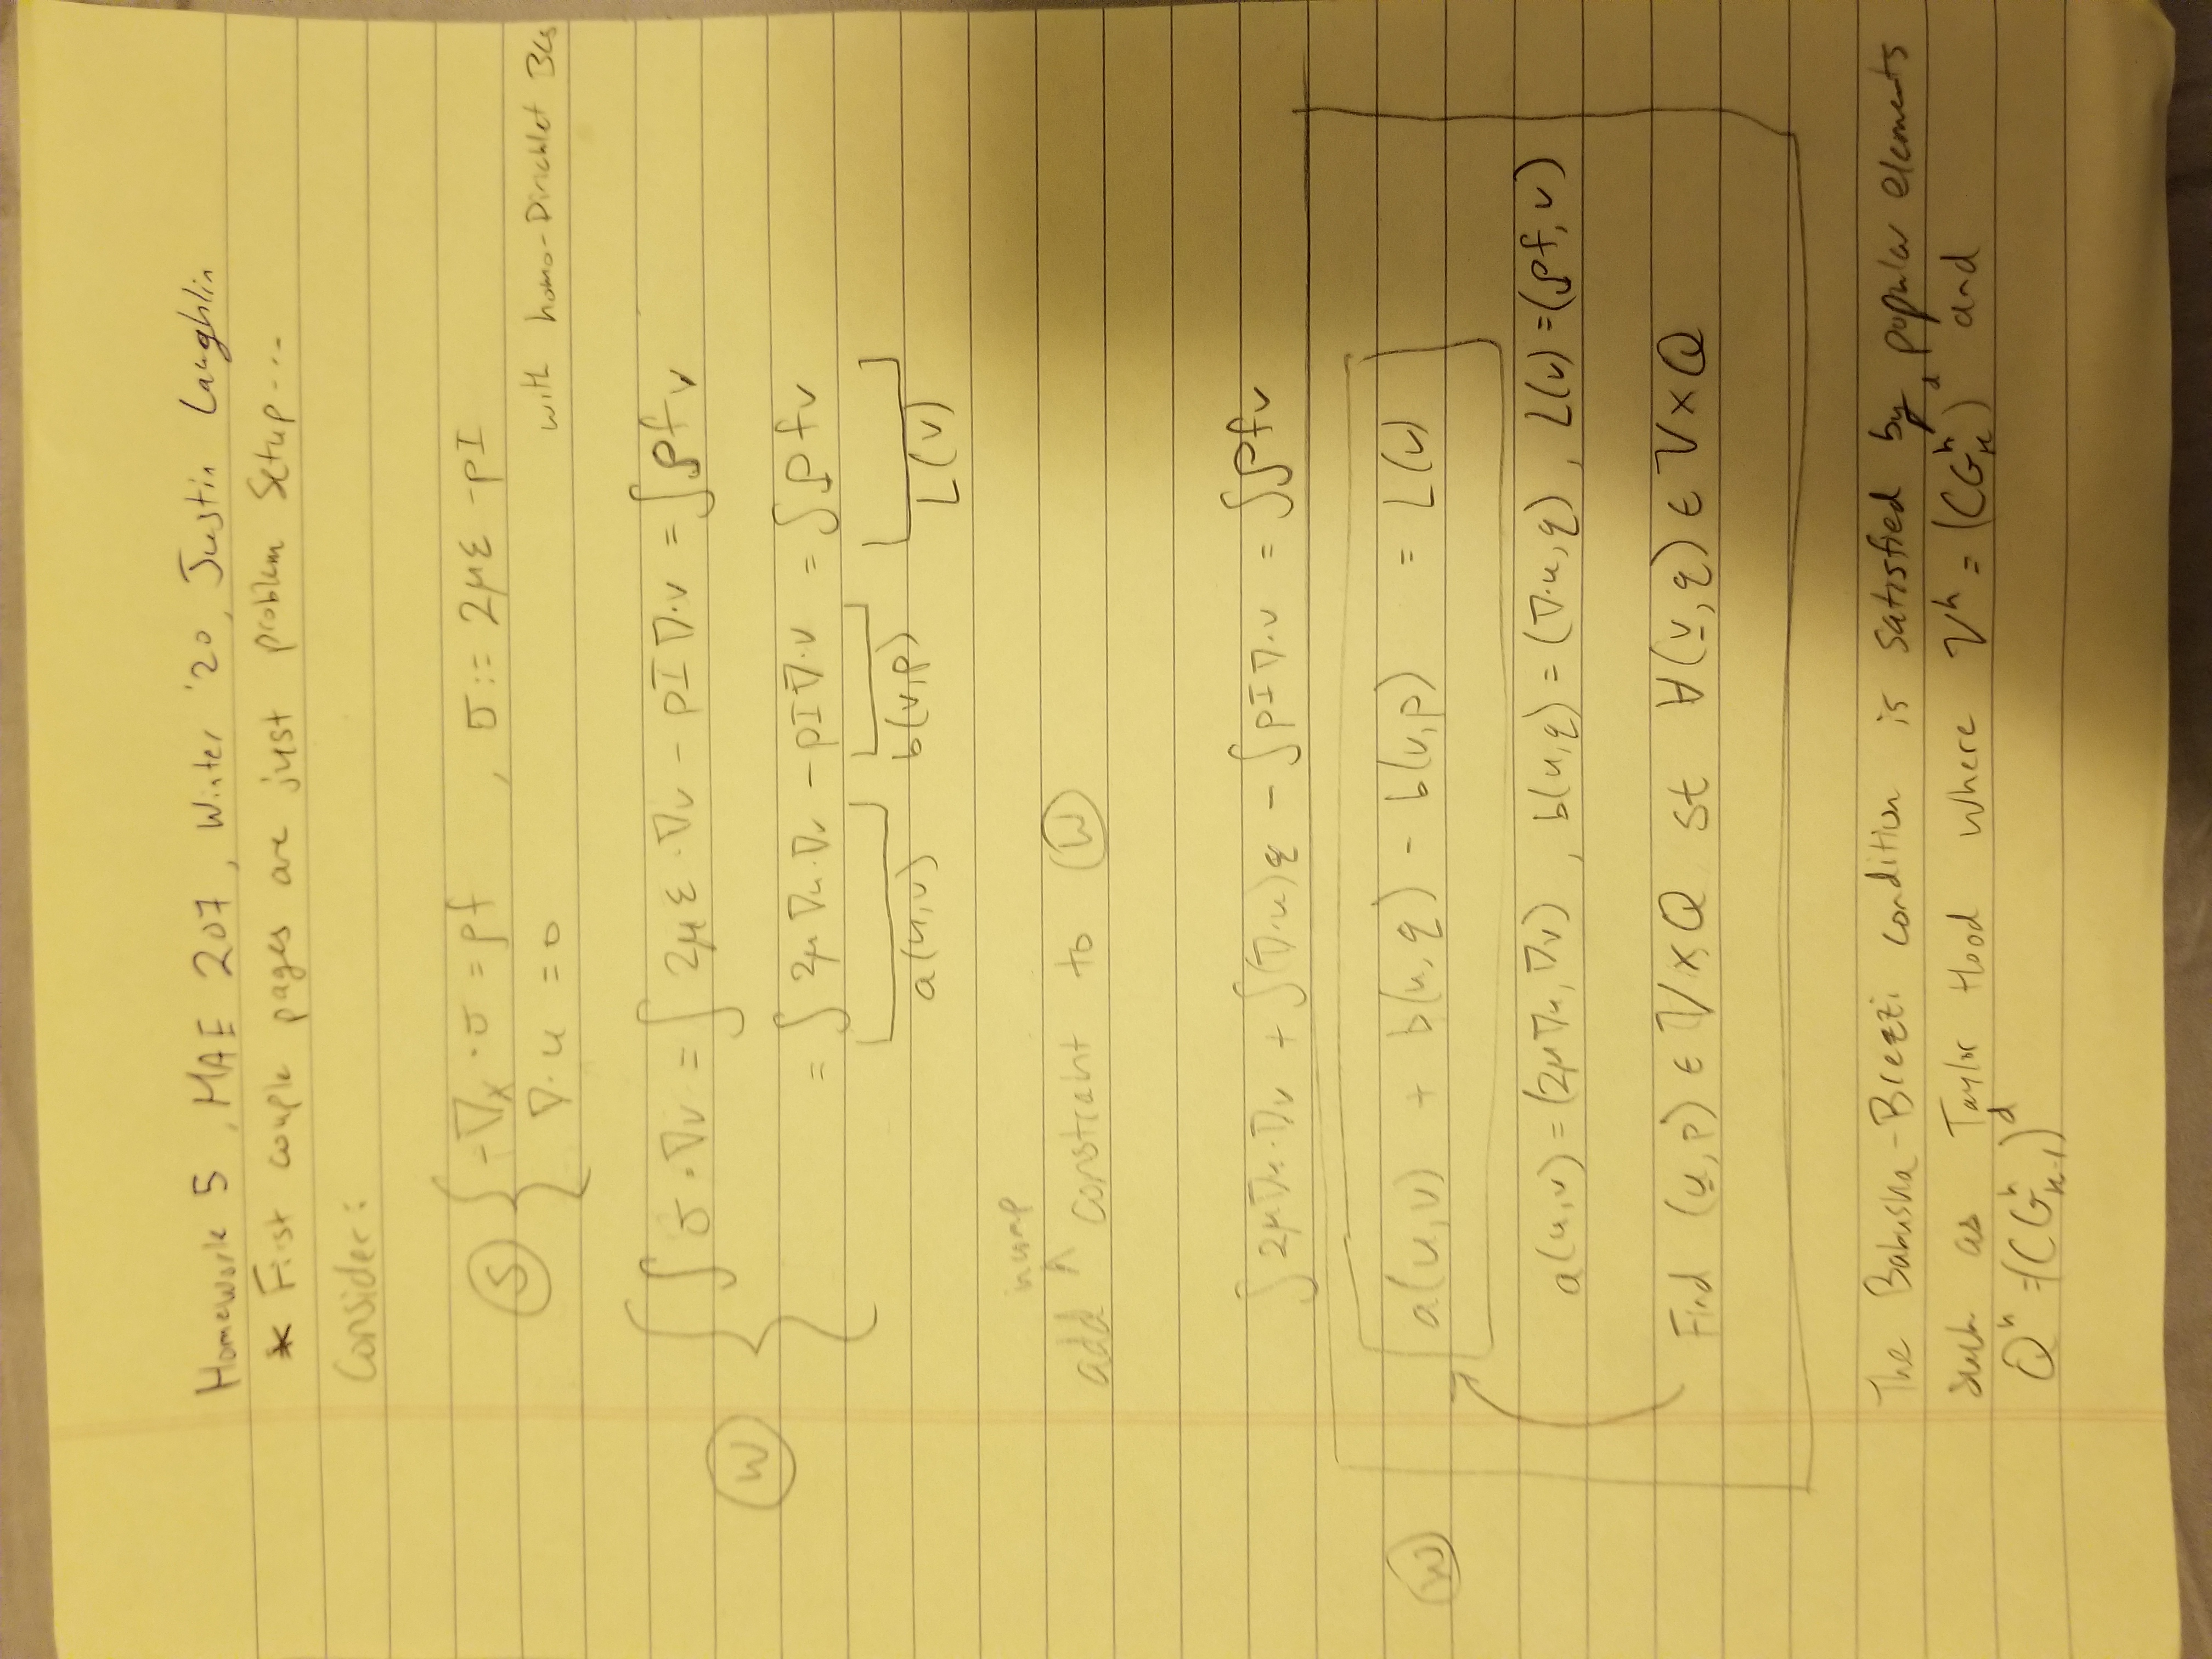 Homework 5, MAE 207, Winter '20, Justin Laughlin
* First couple pages are just problem setup...
Consider:
Ⓢ { -∇ₓ · σ = ρf , σ := 2με - pI
∇·u = 0 with homo-Dirichlet BCs
Ⓦ { ∫ σ · ∇v = ∫ 2με · ∇v - pI∇·v = ∫ρfv
= ∫ 2μ∇u·∇v - pI∇·v = ∫ρfv
a(u,v) b(v,p) L(v)
incomp
add ^ constraint to Ⓦ
∫2μ∇u·∇v + ∫(∇·u)q - ∫pI∇·v = ∫ρfv
Ⓦ a(u,v) + b(u,q) - b(v,p) = L(v)
a(u,v) = (2μ∇u, ∇v) , b(u,q) = (∇·u, q) , L(v) = (ρf, v)
Find (u̲,p) ∈ V×Q st ∀(v̲,q) ∈ V×Q
The Babuska-Brezzi condition is satisfied by popular elements
such as Taylor Hood where Vʰ = (CGʰₖ)ᵈ and
Qʰ = (CGʰₖ₋₁)ᵈ